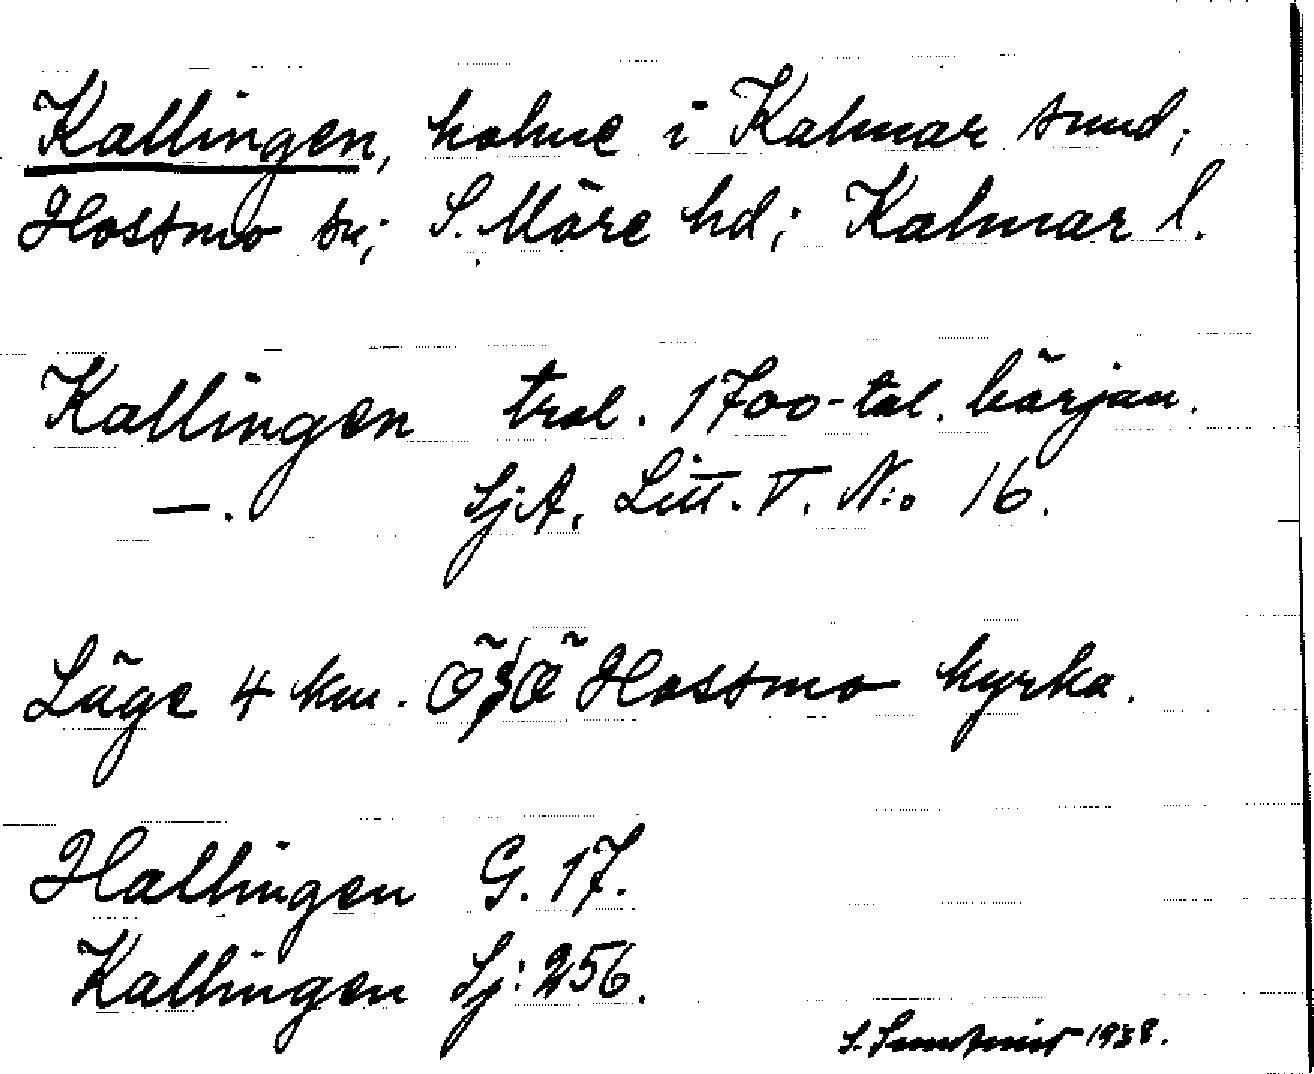 Kallingen, holme i Kalmar sund;
Hossmo sn; S. Möre hd; Kalmar l.
Kallingen trol. 1700-tal. början.
—. SjA, Litt. V. N:o 16.
Läge 4 km. ÖSÖ Hossmo kyrka.
Hallingen G. 17.
Kallingen Sj: 256.
S. 1938.